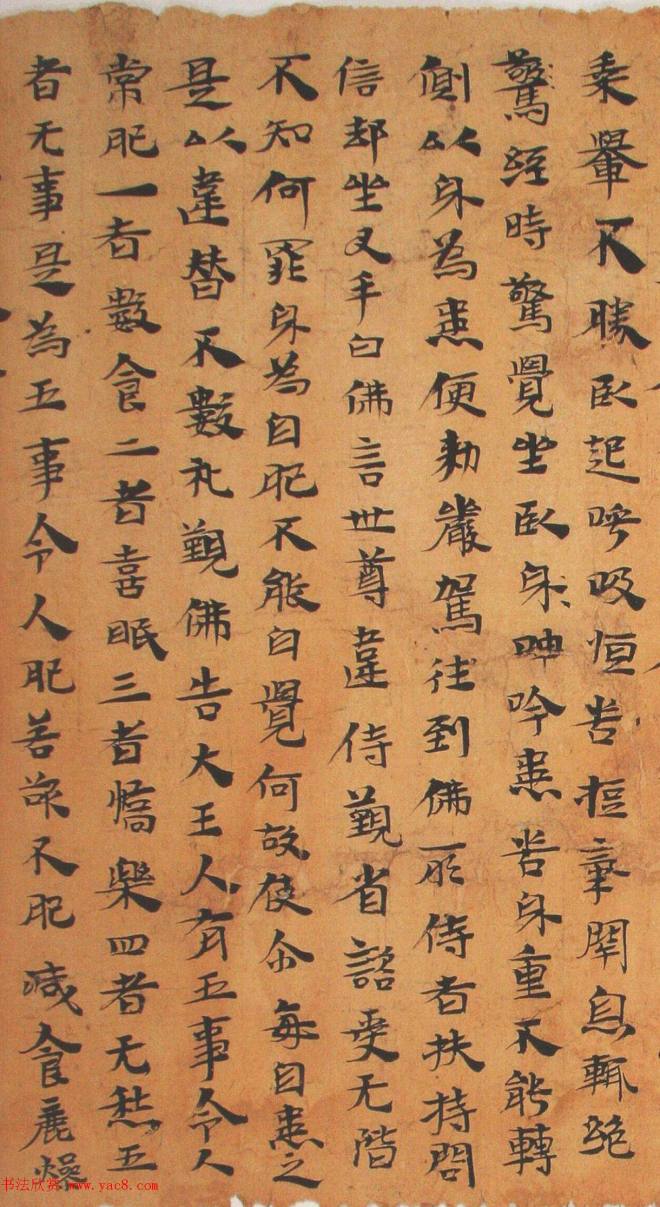 乘輦不勝臥起呼吸恒苦閇息輒絕
驚經時驚覺坐臥身呻吟患苦身重不能轉
側以身為患便勑嚴駕往到佛所侍者扶持問
信却坐叉手白佛言世尊違侍覲省諮受无階
不知何罪身為自肥不能自覺何故使尒每自患之
是以違替不數礼覲佛告大王人有五事令人
常肥一者數食二者喜眠三者憍樂四者无愁五
者无事是為五事令人肥若欲不肥減食麁燥
书法欣赏 www.yac8.com